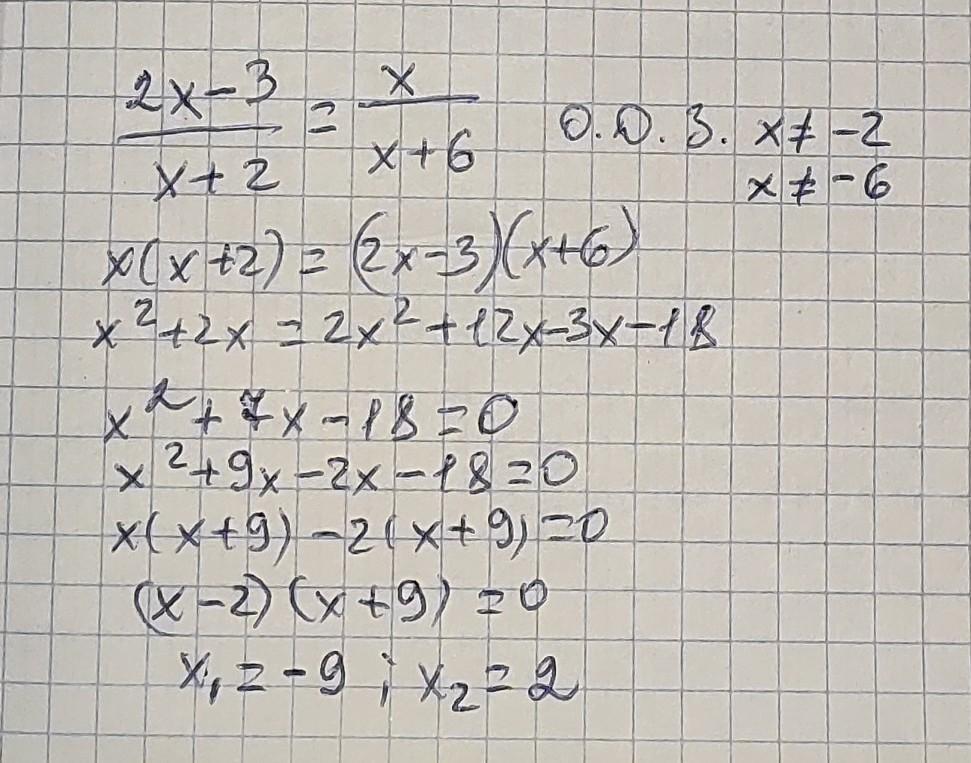 (2x-3)/(x+2) = x/(x+6) О.О.З. x ≠ -2
x ≠ -6
x(x+2) = (2x-3)(x+6)
x²+2x = 2x²+12x-3x-18
x²+7x-18=0
x²+9x-2x-18=0
x(x+9)-2(x+9)=0
(x-2)(x+9)=0
x₁=-9; x₂=2